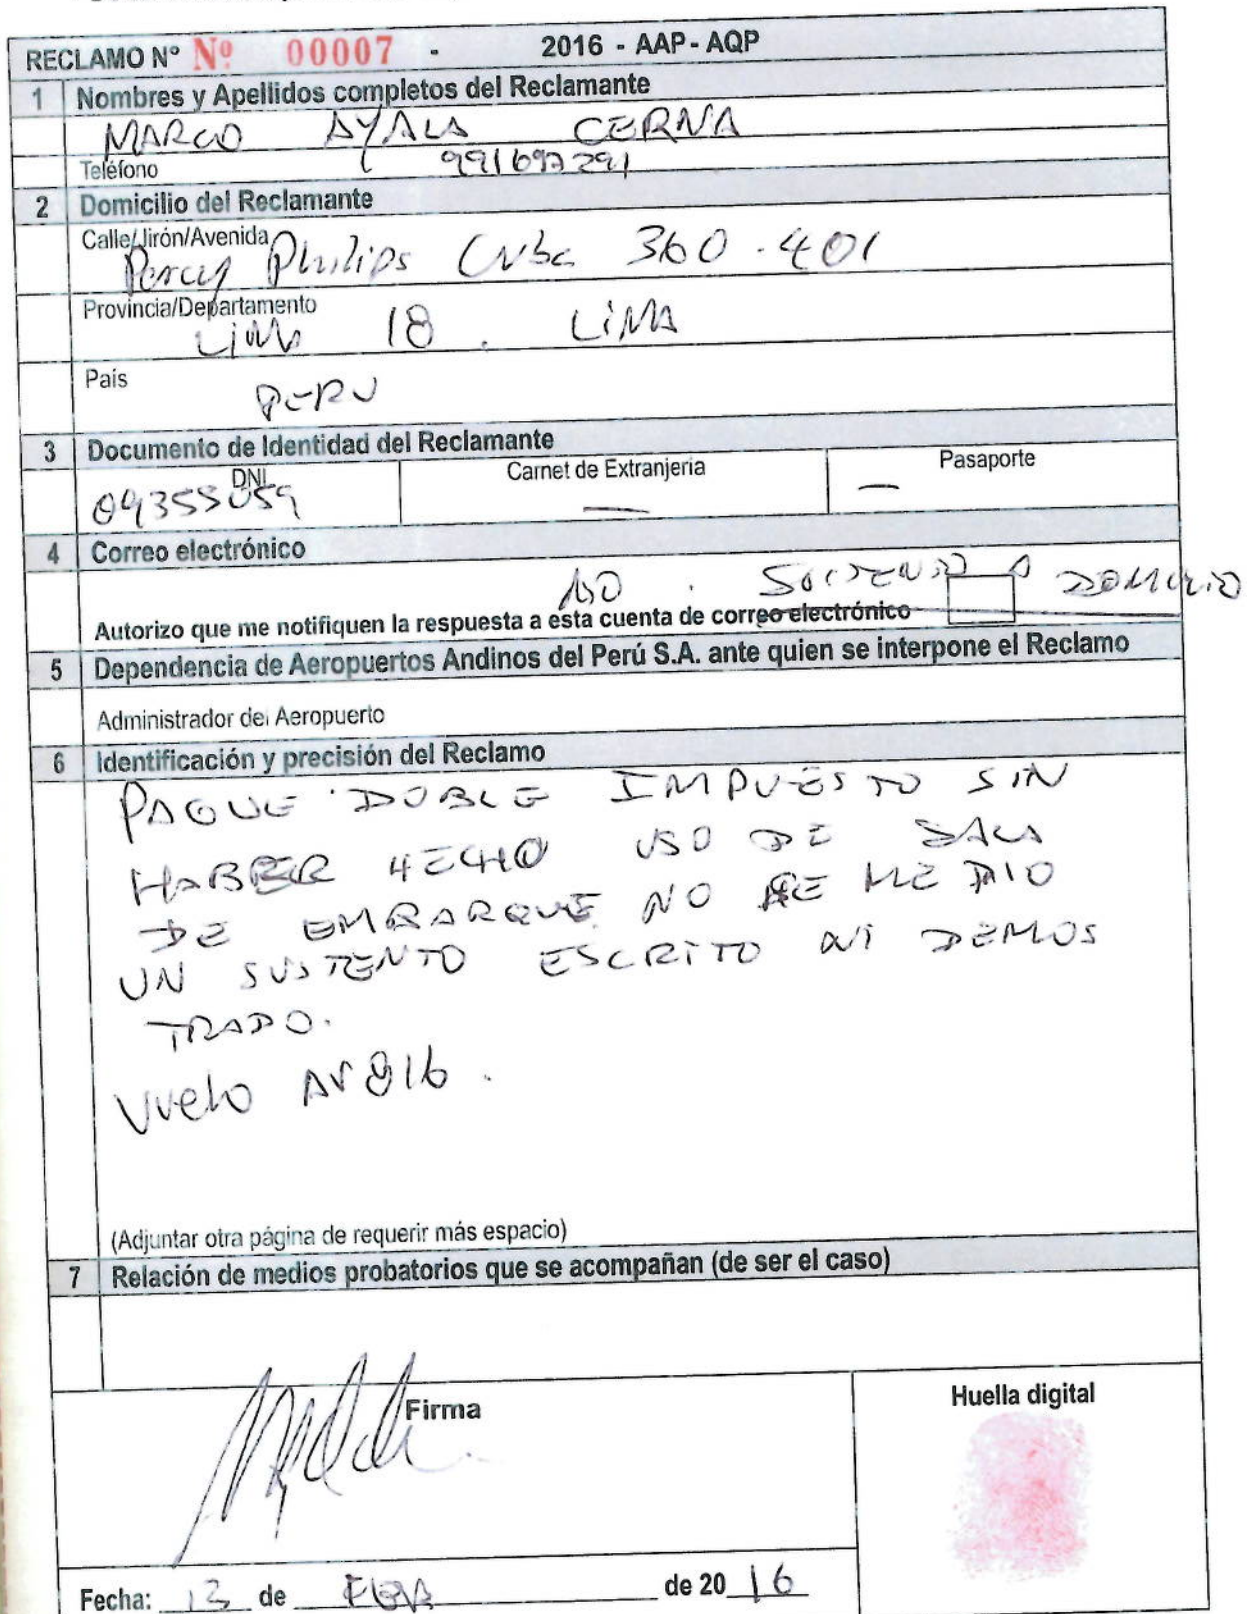 RECLAMO Nº Nº 00007 - 2016 - AAP - AQP
1 Nombres y Apellidos completos del Reclamante
MARCO AYALA CERNA
Teléfono 991697291
2 Domicilio del Reclamante
Calle/Jirón/Avenida
Percy Philips Cuba 360 - 401
Provincia/Departamento
Lima 18 . LIMA
País
PERU
3 Documento de Identidad del Reclamante
DNI Carnet de Extranjeria Pasaporte
09355059 — —
4 Correo electrónico
NO . DOMICILIO
Autorizo que me notifiquen la respuesta a esta cuenta de correo electrónico
5 Dependencia de Aeropuertos Andinos del Perú S.A. ante quien se interpone el Reclamo
Administrador del Aeropuerto
6 Identificación y precisión del Reclamo
PAGUE DOBLE IMPUESTO SIN
HABER HECHO USO DE SALA
DE EMBARQUE NO SE ME DIO
UN SUSTENTO ESCRITO NI DEMOS
TRADO.
Vuelo AV 816 .
(Adjuntar otra página de requerir más espacio)
7 Relación de medios probatorios que se acompañan (de ser el caso)
Firma
Huella digital
Fecha: 13 de FEB de 2016